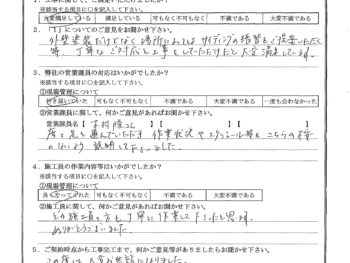 ※該当する項目に○を記入して下さい。
大変満足している 満足している 可もなく不可もなく 不満である 大変不満である
2.「1」についてご意見をお聞かせ下さい。
外壁塗装だけでなく場所によってはサイディングの張替もご提案いただく
等、丁寧なご対応と工事をしていただけたと大変満足しています。
3.弊社の営業課員の対応はいかがでしたか?
※該当する項目に○を記入して下さい。
①現場管理について
行き届いていた 可もなく不可もなく 不満である 大変不満である 一度も会わなかった
②営業課員に関して、何かご意見があればお聞かせ下さい。
営業課員名【 】【 】
度々足を運んでいただき 作業状況やスケジュール等も こちらの不安
のないよう 説明して下さいました。
4.施工員の作業内容等はいかがでしたか?
※該当する項目に○を記入して下さい。
①現場管理について
良くやってくれた 可もなく不可もなく 不満である 大変不満である
②施工員に関して、何かご意見があればお聞かせ下さい。
どの施工員の方も丁寧に作業して下さったと思います。
ありがとうございました。
5.ご契約時点から工事完工まで、何かご意見等がありましたらお聞かせ下さい。
この度は大変お世話になりました。